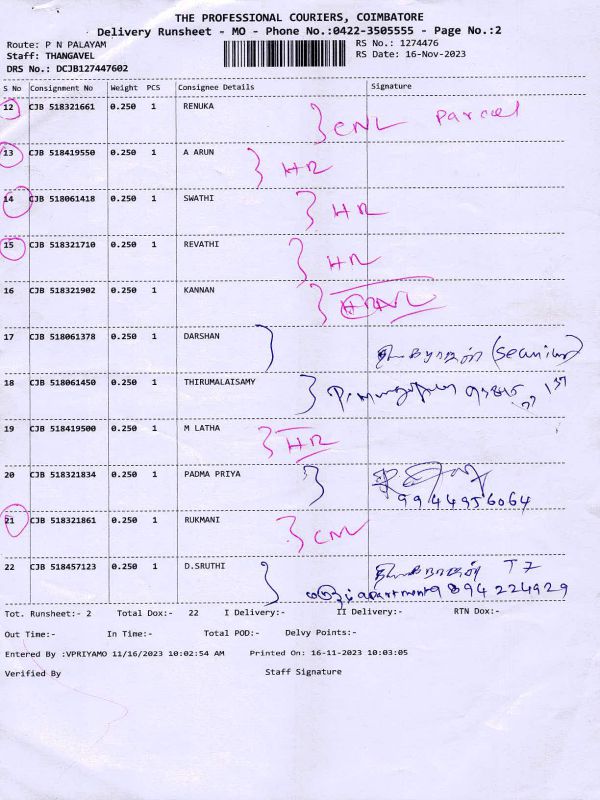 THE PROFESSIONAL COURIERS, COIMBATORE
Delivery Runsheet - MO - Phone No.:0422-3505555 - Page No.:2
Route: P N PALAYAM RS No.: 1274476
Staff: THANGAVEL RS Date: 16-Nov-2023
DRS No.: DCJB127447602
S No Consignment No Weight PCS Consignee Details Signature
12 CJB 518321661 0.250 1 RENUKA CNL Parcel
13 CJB 518419550 0.250 1 A ARUN HR
14 CJB 518061418 0.250 1 SWATHI HR
15 CJB 518321710 0.250 1 REVATHI HR
16 CJB 518321902 0.250 1 KANNAN
17 CJB 518061378 0.250 1 DARSHAN
18 CJB 518061450 0.250 1 THIRUMALAISAMY
19 CJB 518419500 0.250 1 M LATHA HR
20 CJB 518321834 0.250 1 PADMA PRIYA 9944956064
21 CJB 518321861 0.250 1 RUKMANI CNL
22 CJB 518457123 0.250 1 D.SRUTHI T7
apartment 9894224929
Tot. Runsheet:- 2 Total Dox:- 22 I Delivery:- II Delivery:- RTN Dox:-
Out Time:- In Time:- Total POD:- Delvy Points:-
Entered By :VPRIYAMO 11/16/2023 10:02:54 AM Printed On: 16-11-2023 10:03:05
Verified By Staff Signature